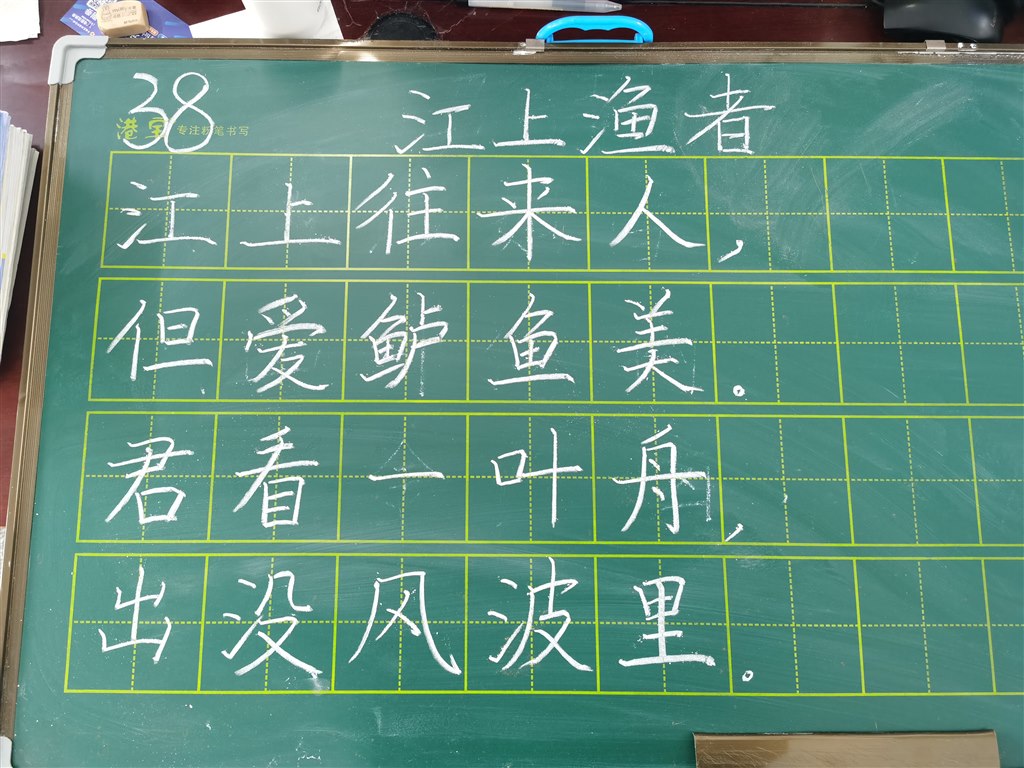 38 江上渔者
港宝 专注粉笔书写
江上往来人，
但爱鲈鱼美。
君看一叶舟，
出没风波里。